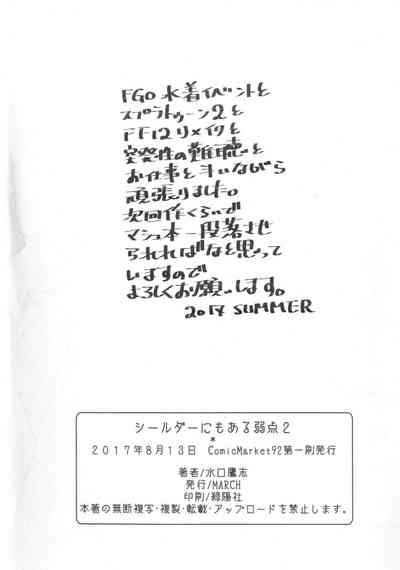 FGO 水着イベントと
スプラトゥーン2と
FF12リメイクと
突発性の難聴と
お仕事と斗いながら
頑張りました。
次回作くらいで
マシュ本一段落させ
られればなと思って
いますので
よろしくお願いします。
2017 SUMMER
シールダーにもある弱点2
*
2017年8月13日 ComicMarket92第一刷発行
著者/水口鷹志
発行/MARCH
印刷/緑陽社
本書の無断複写・複製・転載・アップロードを禁止します。